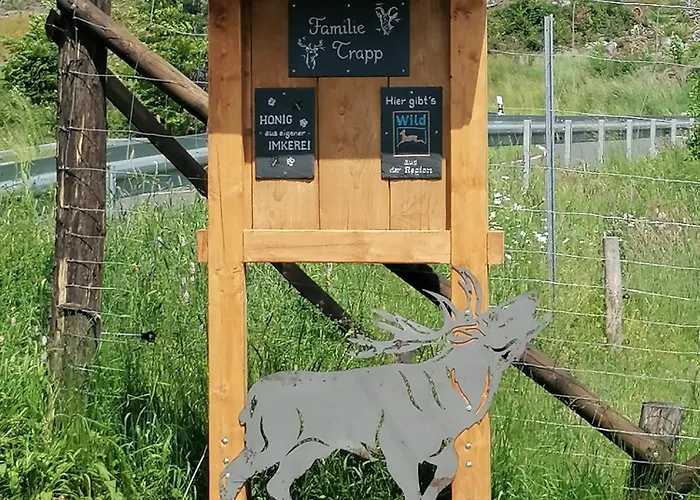 Familie
Trapp
HONIG
- aus eigener
IMKEREI
Hier gibt's
Wild
aus
der Region